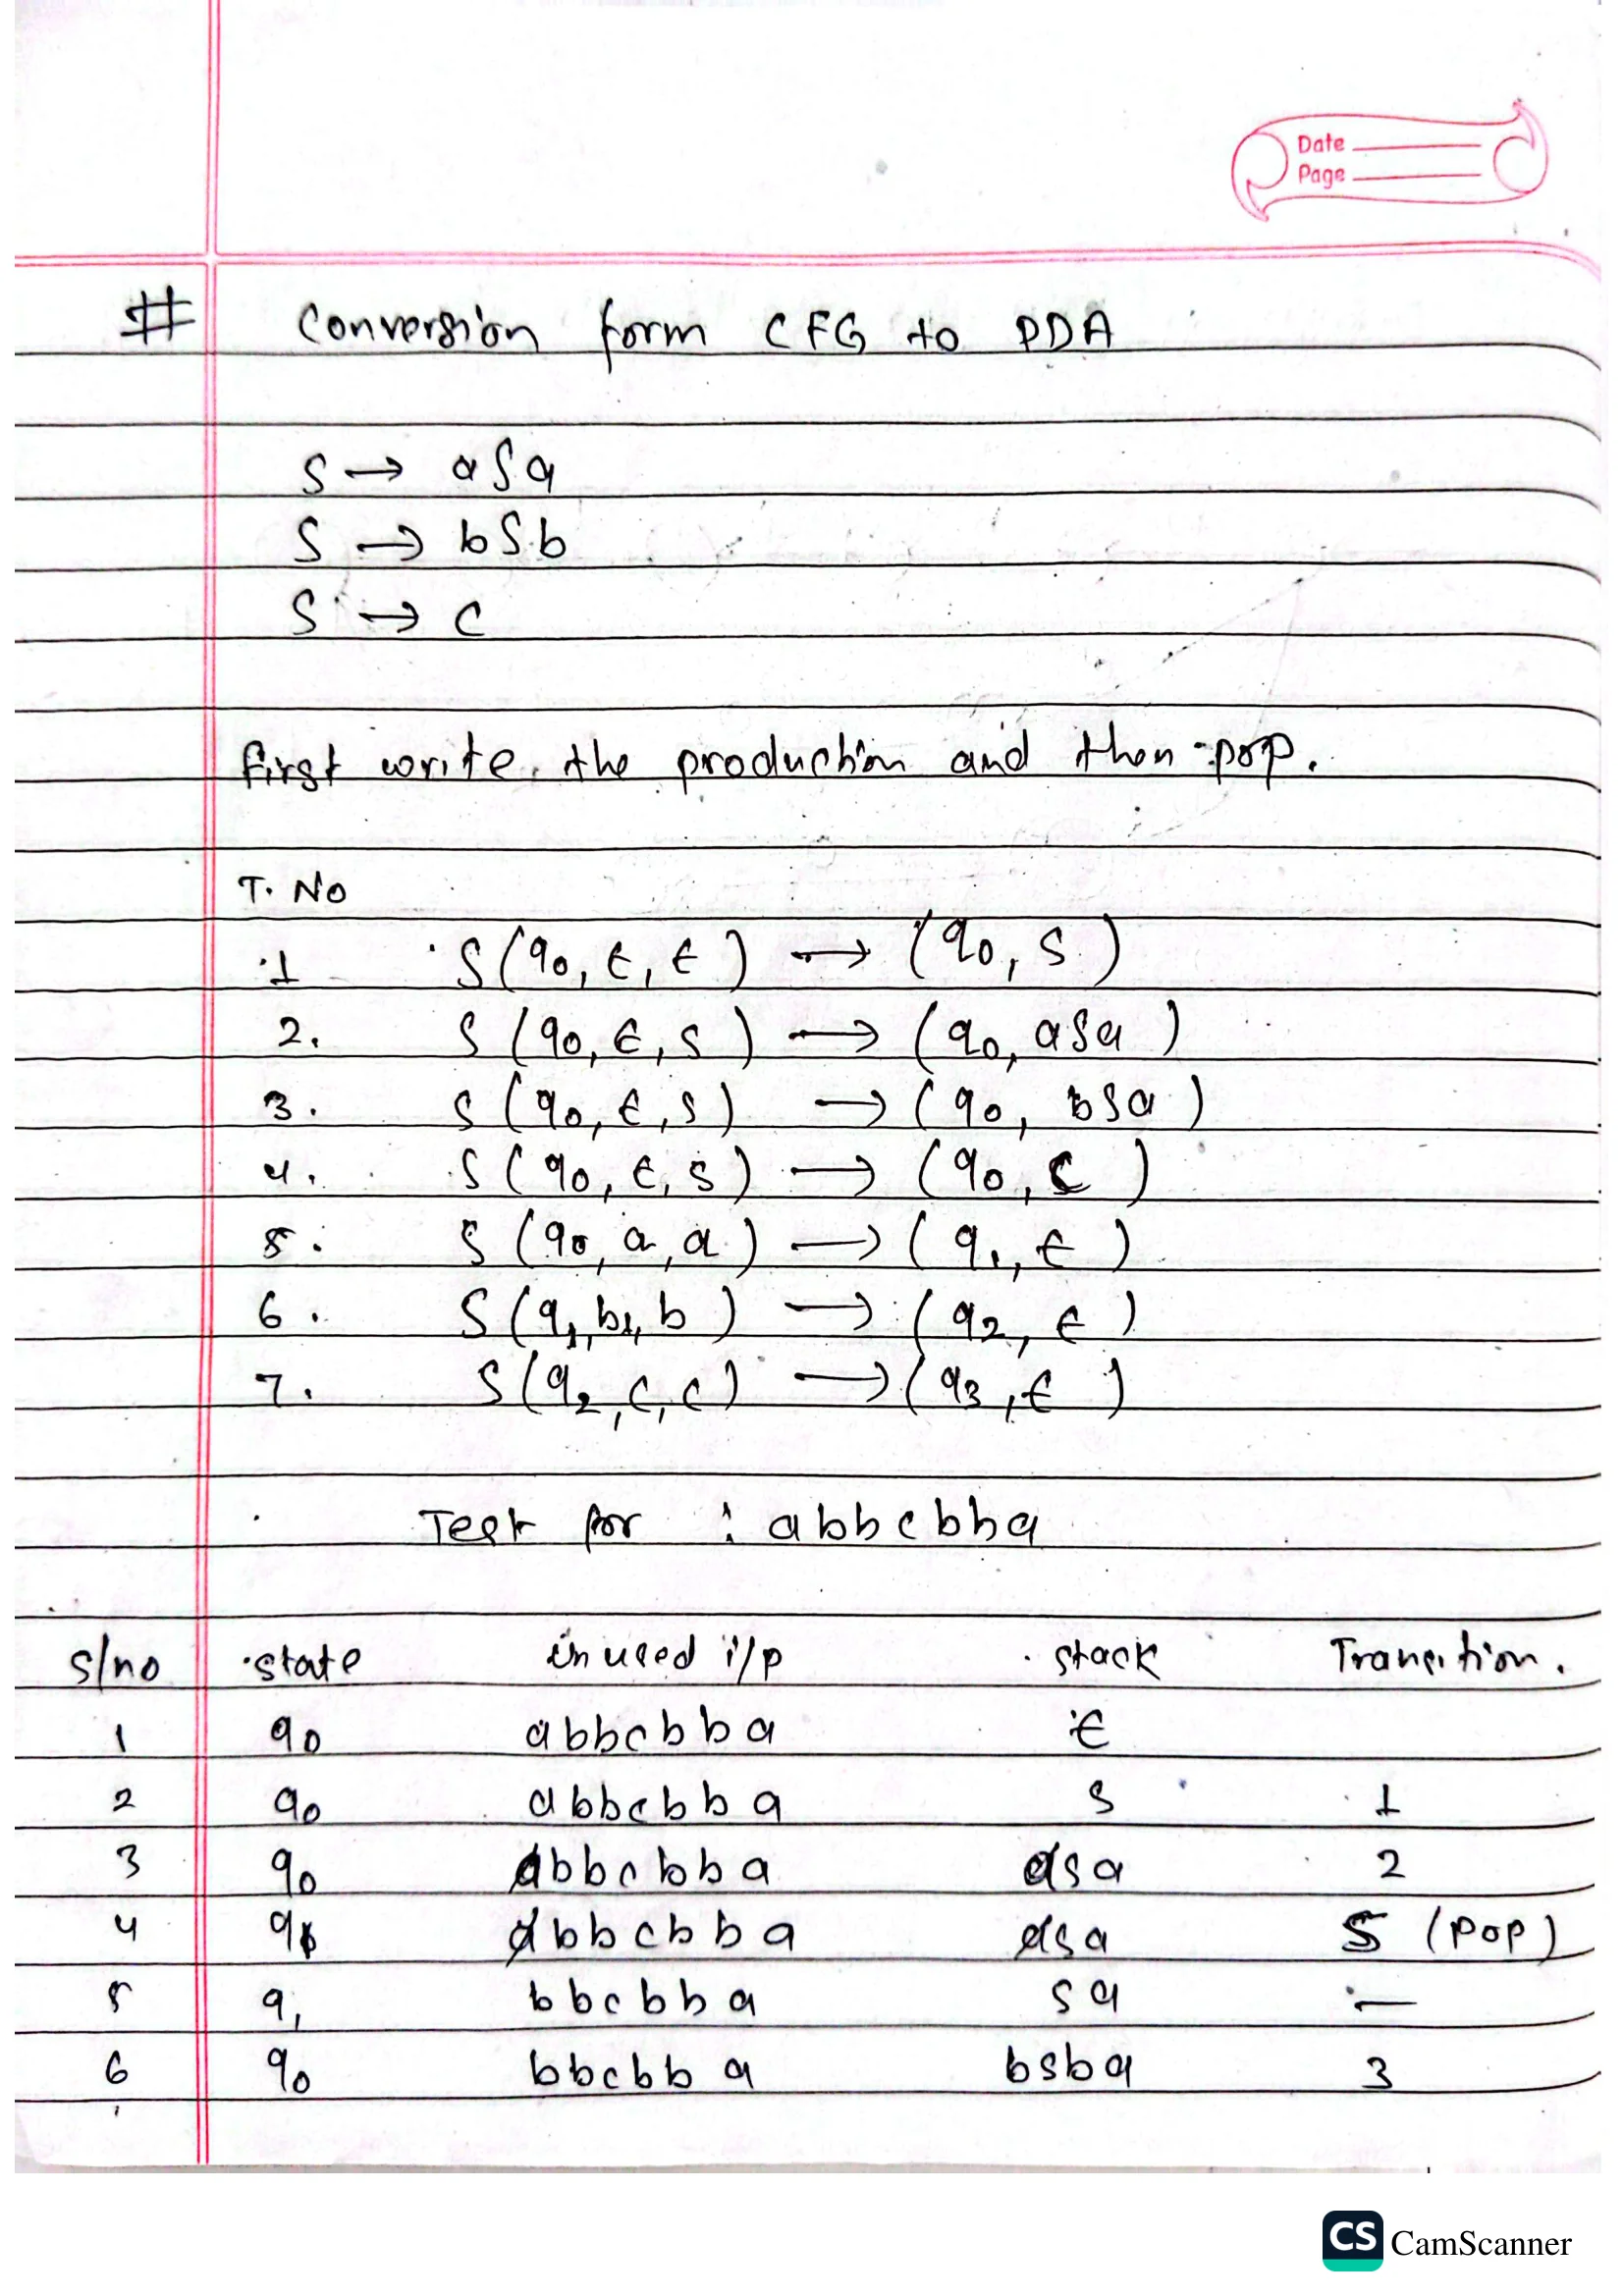 Date
Page
# Conversion form CFG to PDA
S → aSa
S → bSb
S → c
first write the production and then pop.
T. No
1 S(q0, ε, ε) → (q0, S)
2. S(q0, ε, S) → (q0, aSa)
3. S(q0, ε, S) → (q0, bSa)
4. S(q0, ε, S) → (q0, C)
5. S(q0, a, a) → (q1, ε)
6. S(q1, b, b) → (q2, ε)
7. S(q2, c, c) → (q3, ε)
Test for : abbcbba
S/no state unused i/p stack Transition.
1 q0 abbcbba ε
2 q0 abbcbba S 1
3 q0 abbcbba aSa 2
4 abbcbba aSa 5 (POP)
5 q1 bbcbba Sa —
6 q0 bbcbba bSba 3
CS CamScanner